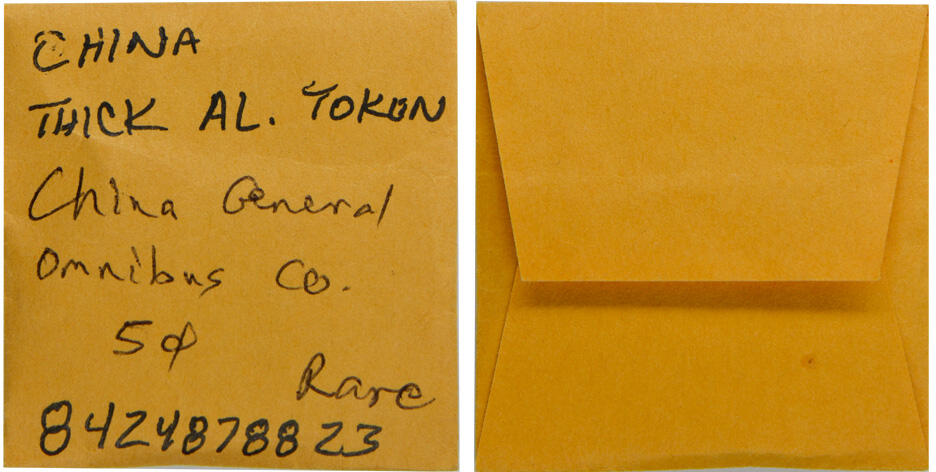 CHINA
THICK AL. TOKEN
China General
Omnibus Co.
5¢
Rare
8424878823